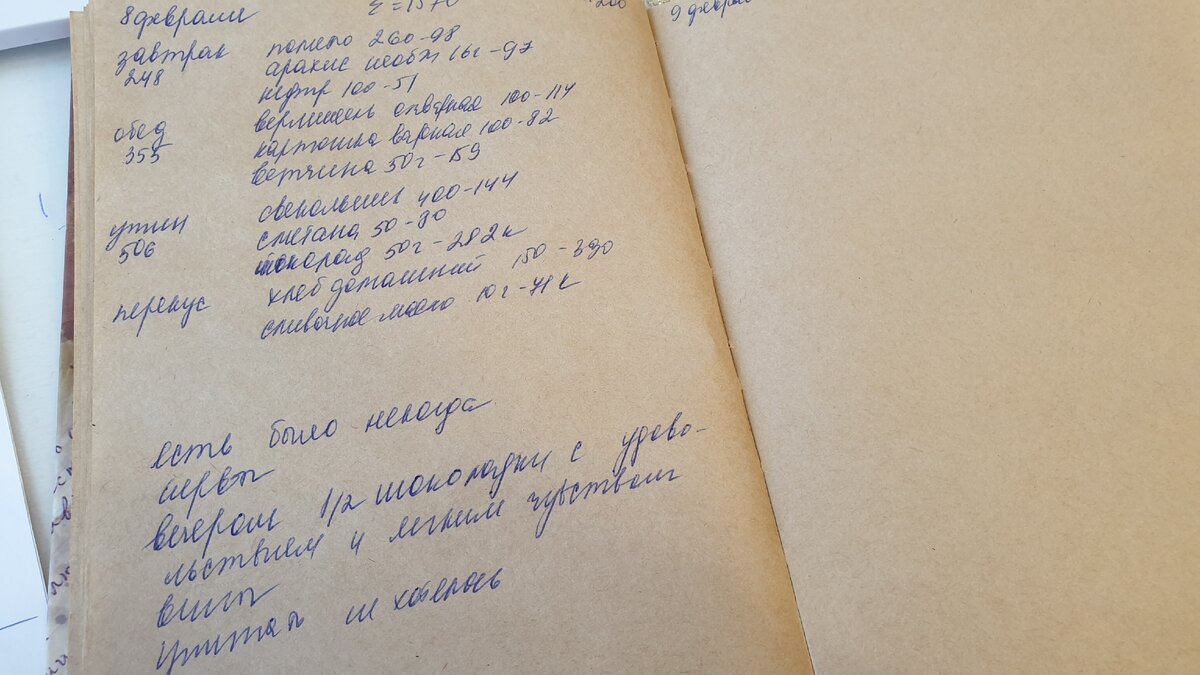 8 февраля Σ=1570 1200
завтрак помело 260-98
248 арахис необж 16г-97
кефир 100-51
обед вермишель отварная 100-114
355 картошка варная 100-82
ветчина 50г-159
ужин свекольник 400-144
506 сметана 50-80
шоколад 50г-282к
перекус хлеб домашний 150-390
сливочное масло 10г-71к
есть было некогда
нервы
вечером 1/2 шоколадки с удово-
льствием и легким чувством
вины
ужинать не хотелось
9 феврал